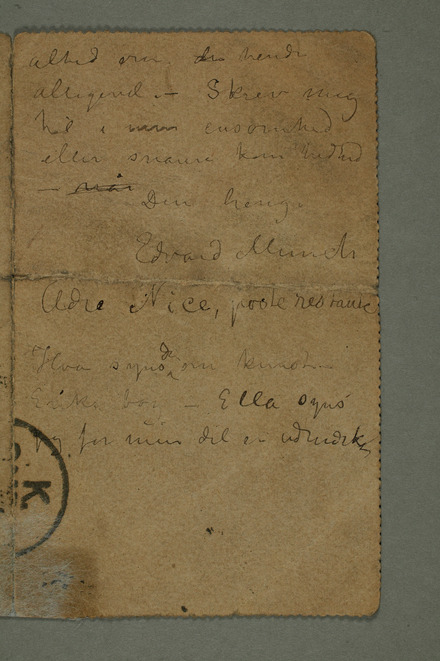 altid om, du hende
alligevel. – Skrev mig
til i min ensomhed
eller snarere kom herned
– når
Din hengi.
Edvard Munch
Adr. Nice, poste restante
Hva syns du om
Eriks bog – Ella syns
jeg for min del er udmærket
K